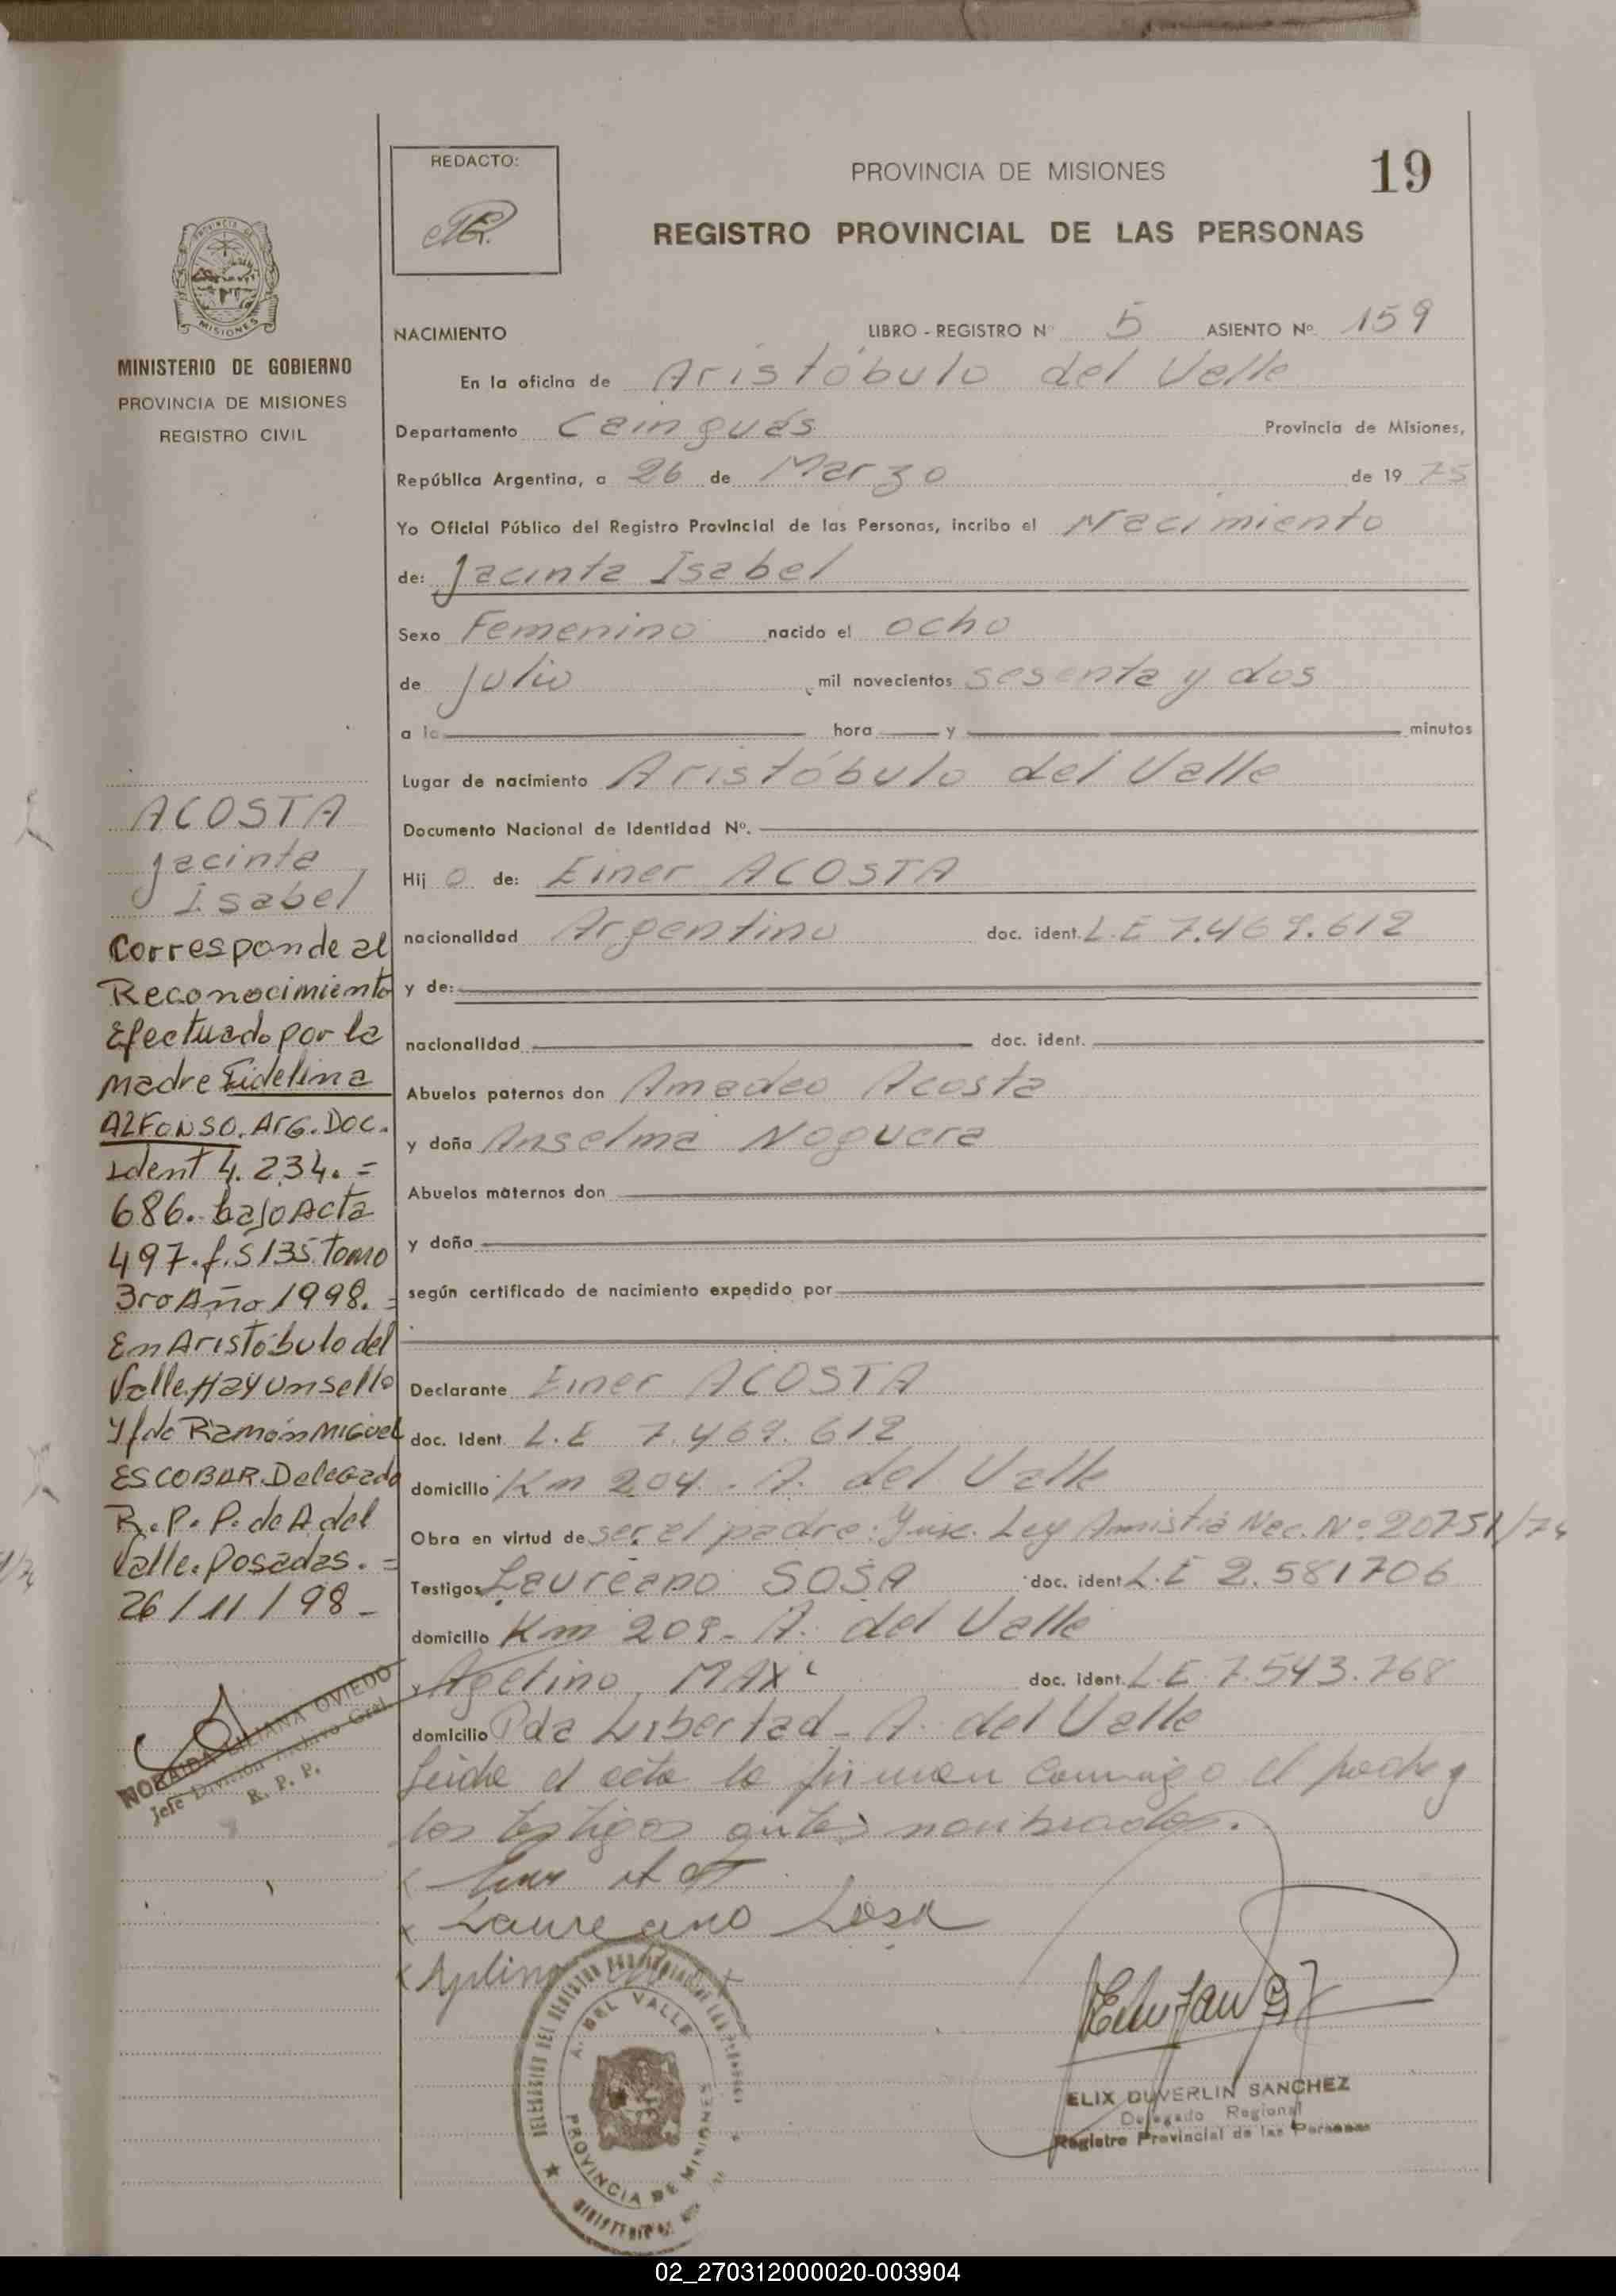 REDACTO:
PROVINCIA DE MISIONES
19
REGISTRO PROVINCIAL DE LAS PERSONAS
MISIONES
MINISTERIO DE GOBIERNO
PROVINCIA DE MISIONES
REGISTRO CIVIL
NACIMIENTO LIBRO - REGISTRO Nº 5 ASIENTO Nº 159
En la oficina de Aristóbulo del Valle
Departamento Cainguás Provincia de Misiones,
República Argentina, a 26 de Marzo de 1975
Yo Oficial Público del Registro Provincial de las Personas, incribo el Nacimiento
de: Jacinta Isabel
Sexo Femenino nacido el ocho
de Julio mil novecientos sesenta y dos
a la hora y minutos
Lugar de nacimiento Aristóbulo del Valle
Documento Nacional de Identidad Nº.
Hij o de: Einer ACOSTA
nacionalidad Argentino doc. ident. L.E 7.469.612
y de:
nacionalidad doc. ident.
Abuelos paternos don Amadeo Acosta
y doña Anselma Noguera
Abuelos maternos don
y doña
según certificado de nacimiento expedido por
Declarante Einer ACOSTA
doc. Ident. L.E 7.469.612
domicilio Km 204 - A. del Valle
Obra en virtud de ser el padre. Insc. Ley Amistia Nac. Nº 20751/74
Testigos Laureano SOSA doc. ident L.E 2.581706
domicilio Km 209 - A. del Valle
y Agelino MAX doc. ident. L.E 7.543.768
domicilio Pda Libertad - A. del Valle
Leida el acta la firman conmigo el padre y
los testigos antes nombrados.
Laureano Sosa
ACOSTA
Jacinta
Isabel
Corresponde al
Reconocimiento
Efectuado por la
madre Fidelina
ALFONSO. Arg. Doc.
Ident 4.234.=
686.. bajo Acta
497. f.S 135 Tomo
3ro Año 1998. =
En Aristóbulo del
Valle. Hay un sello
y f de Ramón Miguel
ESCOBAR. Delegado
R. P. P. de A del
Valle. Posadas. =
26/11/98 -
NORAIDA LILIANA OVIEDO
Jefe División Archivo Gral.
R. P. P.
A. DEL VALLE
PROVINCIA DE MISIONES
ELIX DUVERLIN SANCHEZ
Delegado Regional
Registro Provincial de las Personas
02_270312000020-003904